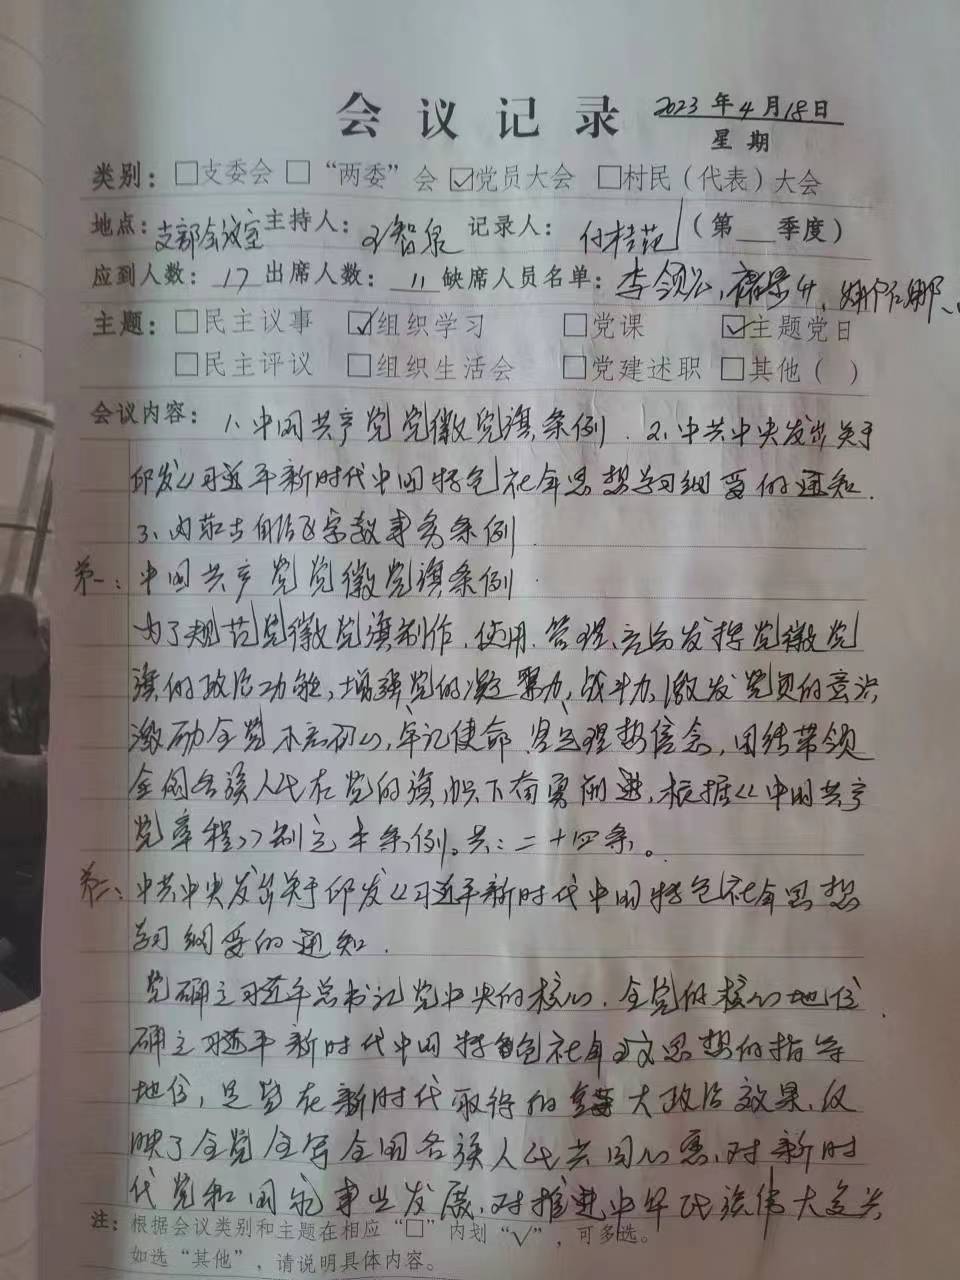 会议记录 2023年4月18日
星期
类别：□支委会 □“两委”会 ☑党员大会 □村民（代表）大会
地点：支部会议室 主持人：王智泉 记录人：付桂范（第__季度）
应到人数：17 出席人数：11 缺席人员名单：李领公，
主题：□民主议事 ☑组织学习 □党课 ☑主题党日
□民主评议 □组织生活会 □党建述职 □其他（ ）
会议内容：1、中国共产党党徽党旗条例．2、中共中央发出关于
印发《习近平新时代中国特色社会思想学习纲要的通知．
3、内蒙古自治区宗教事务条例
第一：中国共产党党徽党旗条例．
为了规范党徽党旗制作、使用、管理、充分发挥党徽党
旗的政治功能，增强党的凝聚力、战斗力、激发党员的意识
激励全党不忘初心，牢记使命 坚定理想信念，团结带领
全国各族人民在党的旗帜下奋勇前进，根据《中国共产
党章程》制定本条例。共：二十四条。
第二、中共中央发出关于印发《习近平新时代中国特色社会思想
学习纲要的通知．
党确立习近平总书记党中央的核心．全党的核心地位
确立习近平新时代中国特色社会主义思想的指导
地位，是党在新时代取得的重大政治效果，反
映了全党全军全国各族人民共同心愿，对新时
代党和国家事业发展，对推进中华民族伟大复兴
注：根据会议类别和主题在相应“□”内划“√”，可多选。
如选“其他”，请说明具体内容。